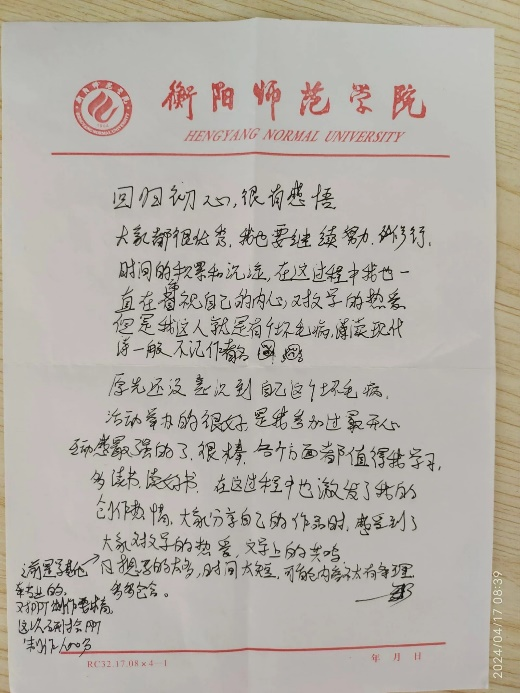 衡阳师范学院
HENGYANG NORMAL UNIVERSITY
回归初心,很有感悟
大家都很优秀,我也要继续努力,修行,
时间的积累和沉淀,在这过程中我也一
直在审视自己的内心,对文学的热爱
但是我这人就是有个坏毛病,读英现代
诗一般不记作者名
原先还没意识到自己这个坏毛病,
活动举办的很好 是我参加过最开心
互动感最强的了,很棒,各个方面都值得我学习,
多读书,读好书,在这过程中也激发了我的
创作热情,大家分享自己的作品时,感受到了
大家对文学的热爱,文学上的共鸣
想的太多,时间太短,可能内容不太有条理
多多包含。
之前是学其他
专业的,
对PPT制作要求高,
这次研讨会PPT
制作人
RC32.17.08×4-1
年 月 日
2024/04/17 08:39